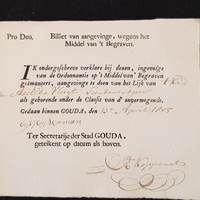 Pro Deo. Billiet van aangevinge, wegens het
Middel van 't Begraven.
IK ondergeschreve verklare bij dezen, ingevolge
van de Ordonnantie op 't Middel van 't Begraven
geëmaneert, aangevinge te doen van het Lijk van
als gehorende onder de Classis van d' onvermogende.
Gedaan binnen GOUDA, den 13 April 1805
Ter Secretarije der Stad GOUDA,
geteikent op datum als boven.